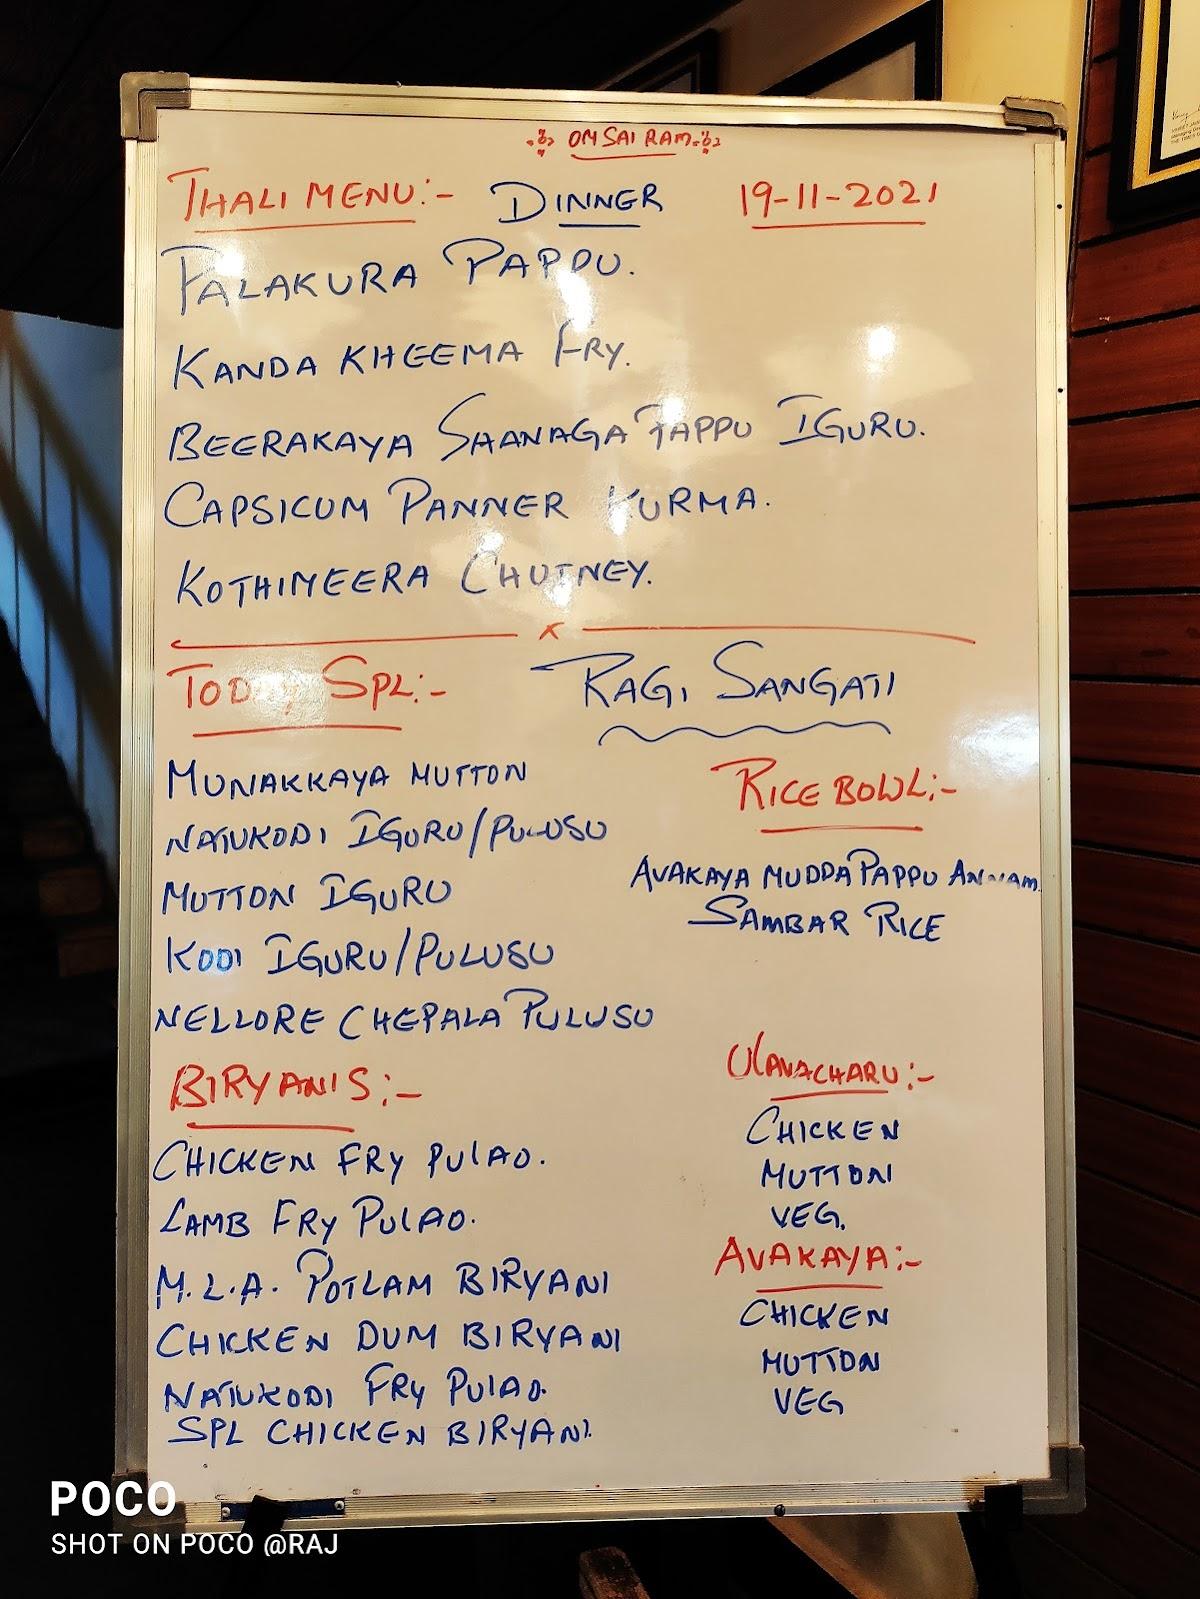 OM SAI RAM
THALI MENU:- DINNER 19-11-2021
PALAKURA PAPPU.
KANDA KHEEMA FRY.
BEERAKAYA SAANAGA PAPPU IGURU.
CAPSICUM PANNER KURMA.
KOTHIMEERA CHUTNEY.
TODAY SPL:- RAGI SANGATI
MUNAKKAYA MUTTON
NATUKODI IGURU/PULUSU
MUTTON IGURU
KODI IGURU/PULUSU
NELLORE CHEPALA PULUSU
RICE BOWL:-
AVAKAYA MUDDA PAPPU ANNAM
SAMBAR RICE
BIRYANIS:-
CHICKEN FRY PULAO.
LAMB FRY PULAO.
M.L.A. POTLAM BIRYANI
CHICKEN DUM BIRYANI
NATUKODI FRY PULAO.
SPL CHICKEN BIRYANI.
ULAVACHARU:-
CHICKEN
MUTTON
VEG.
AVAKAYA:-
CHICKEN
MUTTON
VEG
POCO
SHOT ON POCO @RAJ